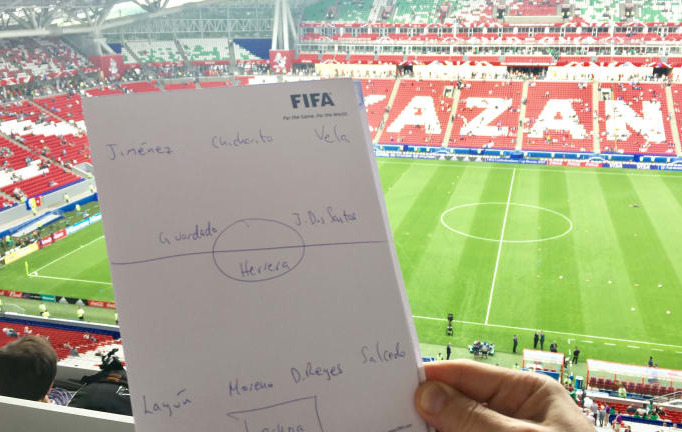 FIFA®
For the Game. For the World.
KAZAN
Jiménez Chicharito Vela
Guardado J. Dos Santos
Herrera
Layún Moreno D. Reyes Salcedo